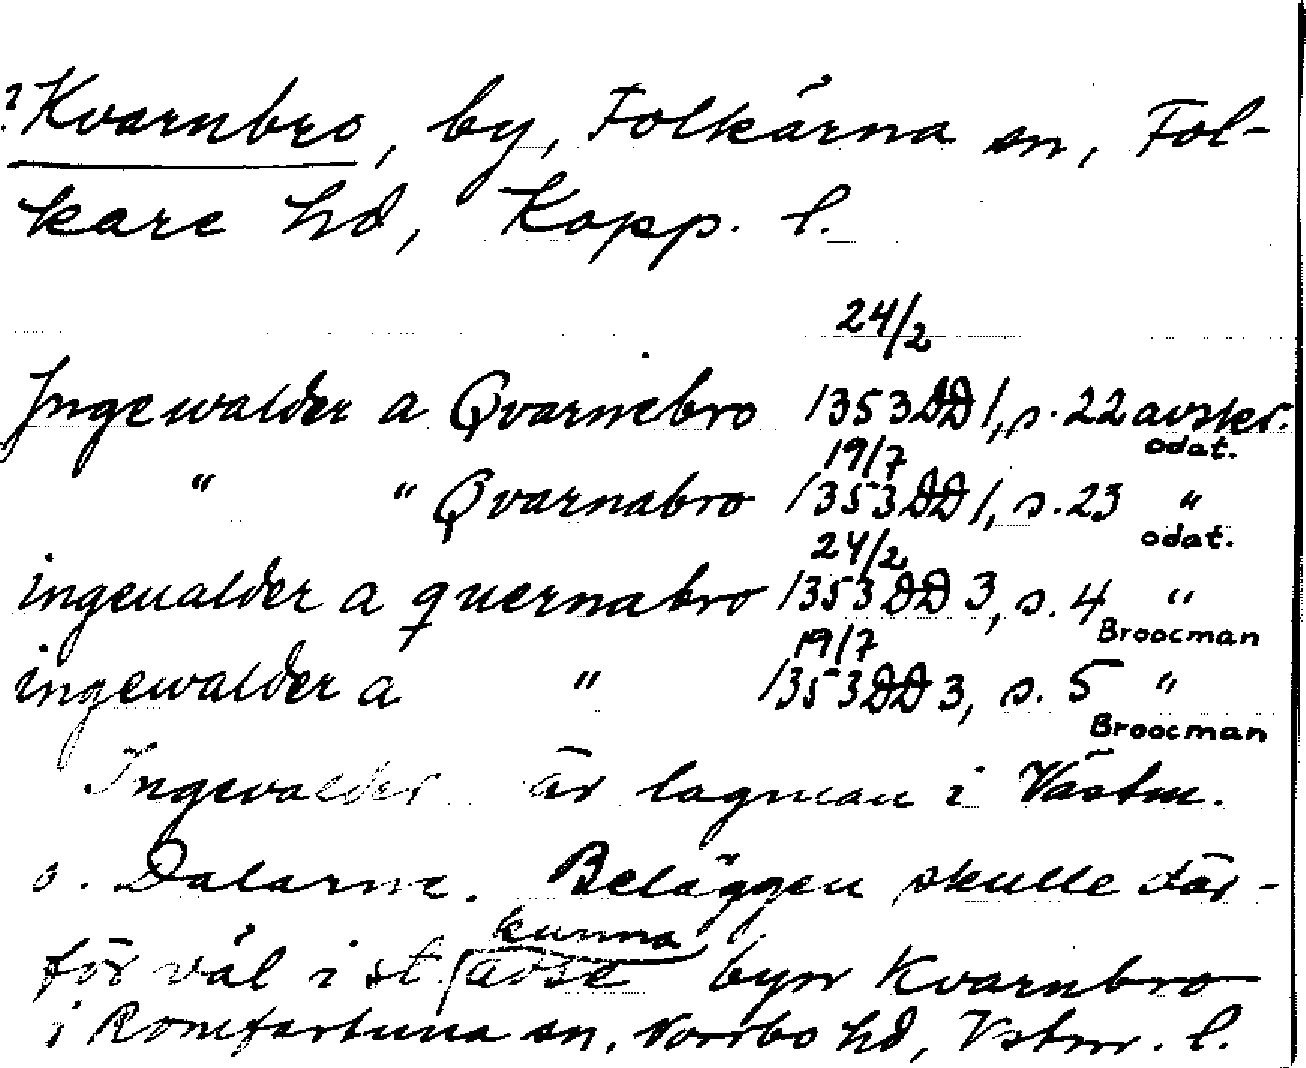 ? Kvarnbro, by, Folkärna sn, Fol-
kare hd, Kopp. l.
24/2
Ingewalder a Qvarnebro 1353 DD 1, s. 22 avskr.
odat.
19/7
" " Qvarnabro 1353 DD 1, s. 23 "
odat.
24/2
ingeualder a quernabro 1353 DD 3, s. 4 "
Broocman
19/7
ingewalder a " 1353 DD 3, s. 5 "
Broocman
Ingevalder är lagman i Västm.
o. Dalarne. Beläggen skulle där-
kunna
för väl i st. avse byn Kvarnbro
i Romfartuna sn, Norrbo hd, Vstm. l.